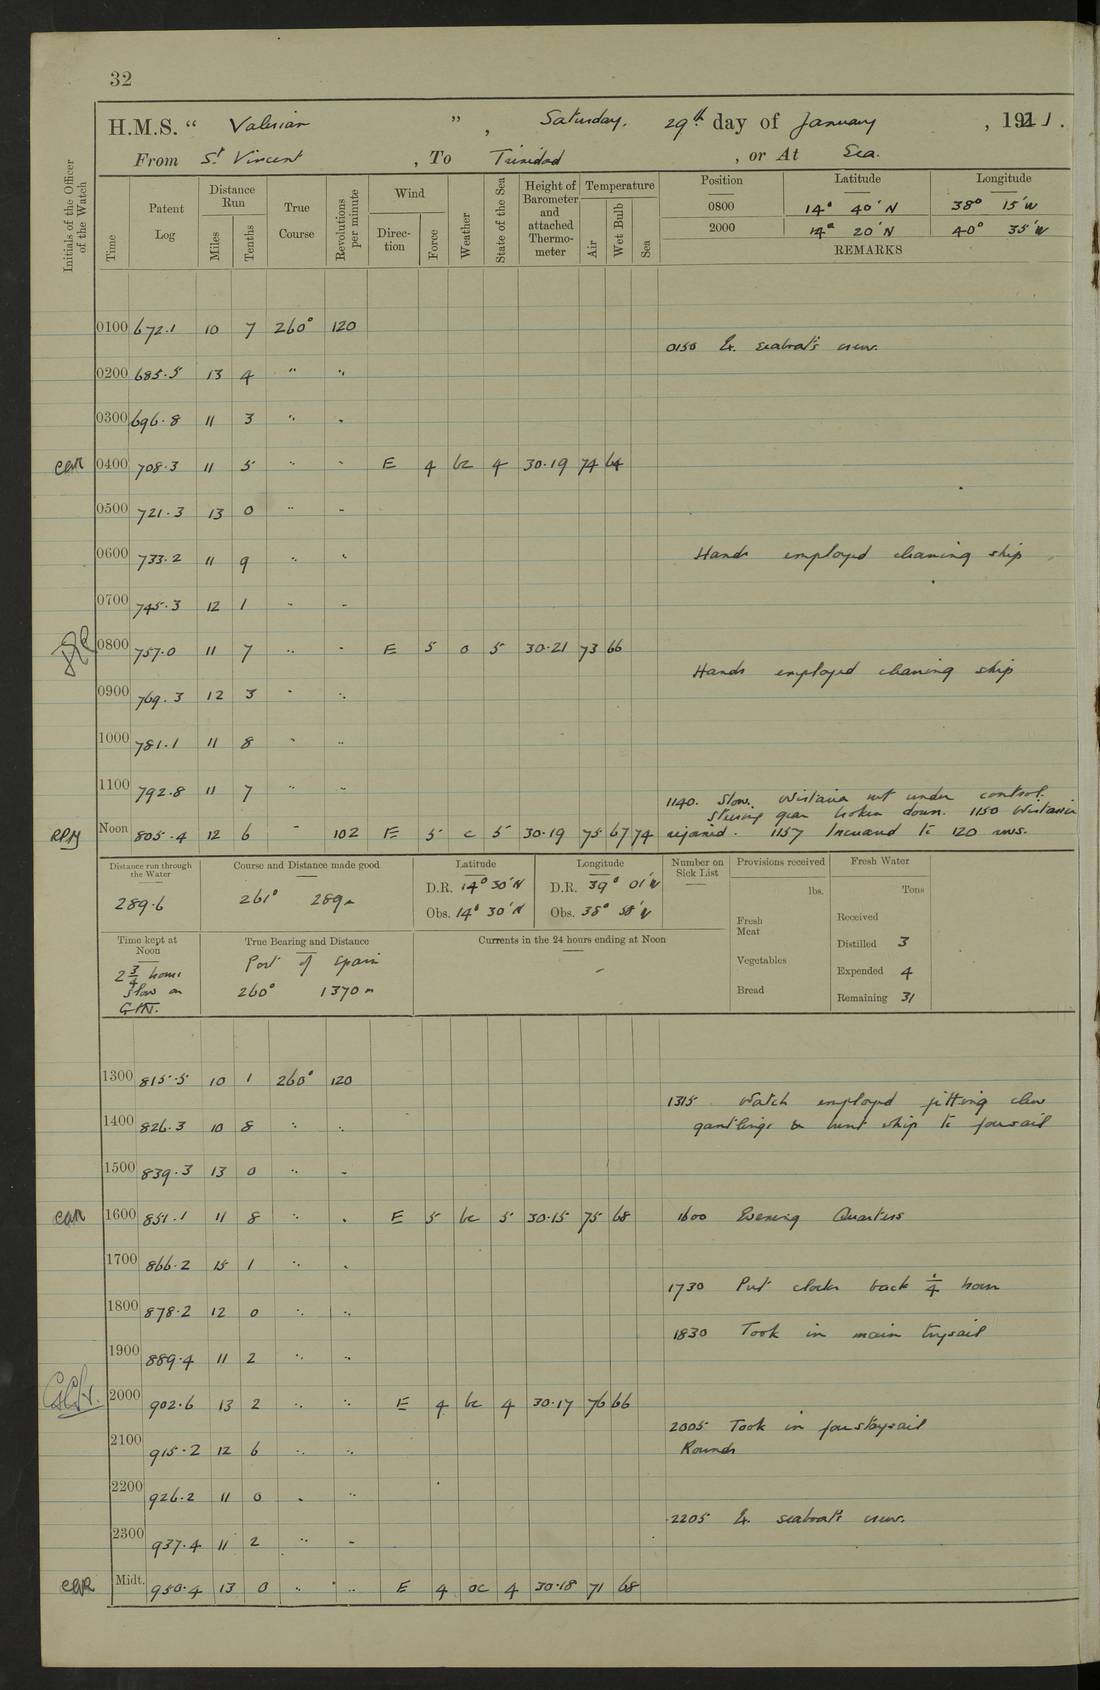 32
H.M.S. “ Valerian ” , Saturday. 29th day of January , 1921.
From St Vincent , To Trinidad , or At Sea.
Initials of the Officer of the Watch
Time Patent Log Distance Run Miles Tenths True Course Revolutions per minute Wind Direction Force Weather State of the Sea Height of Barometer and attached Thermometer Temperature Air Wet Bulb Sea
Position Latitude Longitude
0800 14° 40' N 38° 15' W
2000 14° 20' N 40° 35' W
REMARKS
0100 672.1 10 7 260° 120
0150 Ex. seaboat's crew.
0200 685.5 13 4 " "
0300 696.8 11 3 " "
0400 708.3 11 5 " " E 4 bc 4 30.19 74 64
0500 721.3 13 0 " "
0600 733.2 11 9 " " Hands employed cleaning ship
0700 745.3 12 1 " "
0800 757.0 11 7 " " E 5 o 5 30.21 73 66
Hands employed cleaning ship
0900 769.3 12 3 " "
1000 781.1 11 8 " "
1100 792.8 11 7 " "
1140. Slow. Wistaria not under control.
steering gear broken down. 1150 Wistaria
RPM Noon 805.4 12 6 " 102 E 5 c 5 30.19 75 67 74 rejoined. 1157 Increased to 120 revs.
Distance run through the Water
289.6
Course and Distance made good
261° 289m
Latitude
D.R. 14° 30' N
Obs. 14° 30' N
Longitude
D.R. 39° 01' W
Obs. 38° 58' W
Number on Sick List
Provisions received
lbs.
Fresh Meat
Vegetables
Bread
Fresh Water
Tons
Received
Distilled 3
Expended 4
Remaining 31
Time kept at Noon
2 3/4 hours
slow on
G.M.T.
True Bearing and Distance
Port of Spain
260° 1370m
Currents in the 24 hours ending at Noon
-
1300 815.5 10 1 260° 120
1315 Watch employed fitting clew
1400 826.3 10 8 " "
gantlings & bunt whip to foresail
1500 839.3 13 0 " "
1600 851.1 11 8 " " E 5 bc 5 30.15 75 68 1600 Evening Quarters
1700 866.2 15 1 " "
1730 Put clocks back 1/4 hour
1800 878.2 12 0 " "
1830 Took in main trysail
1900 889.4 11 2 " "
2000 902.6 13 2 " " E 4 bc 4 30.17 76 66
2005 Took in forestaysail
2100 915.2 12 6 " " Rounds
2200 926.2 11 0 " "
2205 Ex. seaboat's crew.
2300 937.4 11 2 " "
Midt. 950.4 13 0 " " E 4 oc 4 30.18 71 68